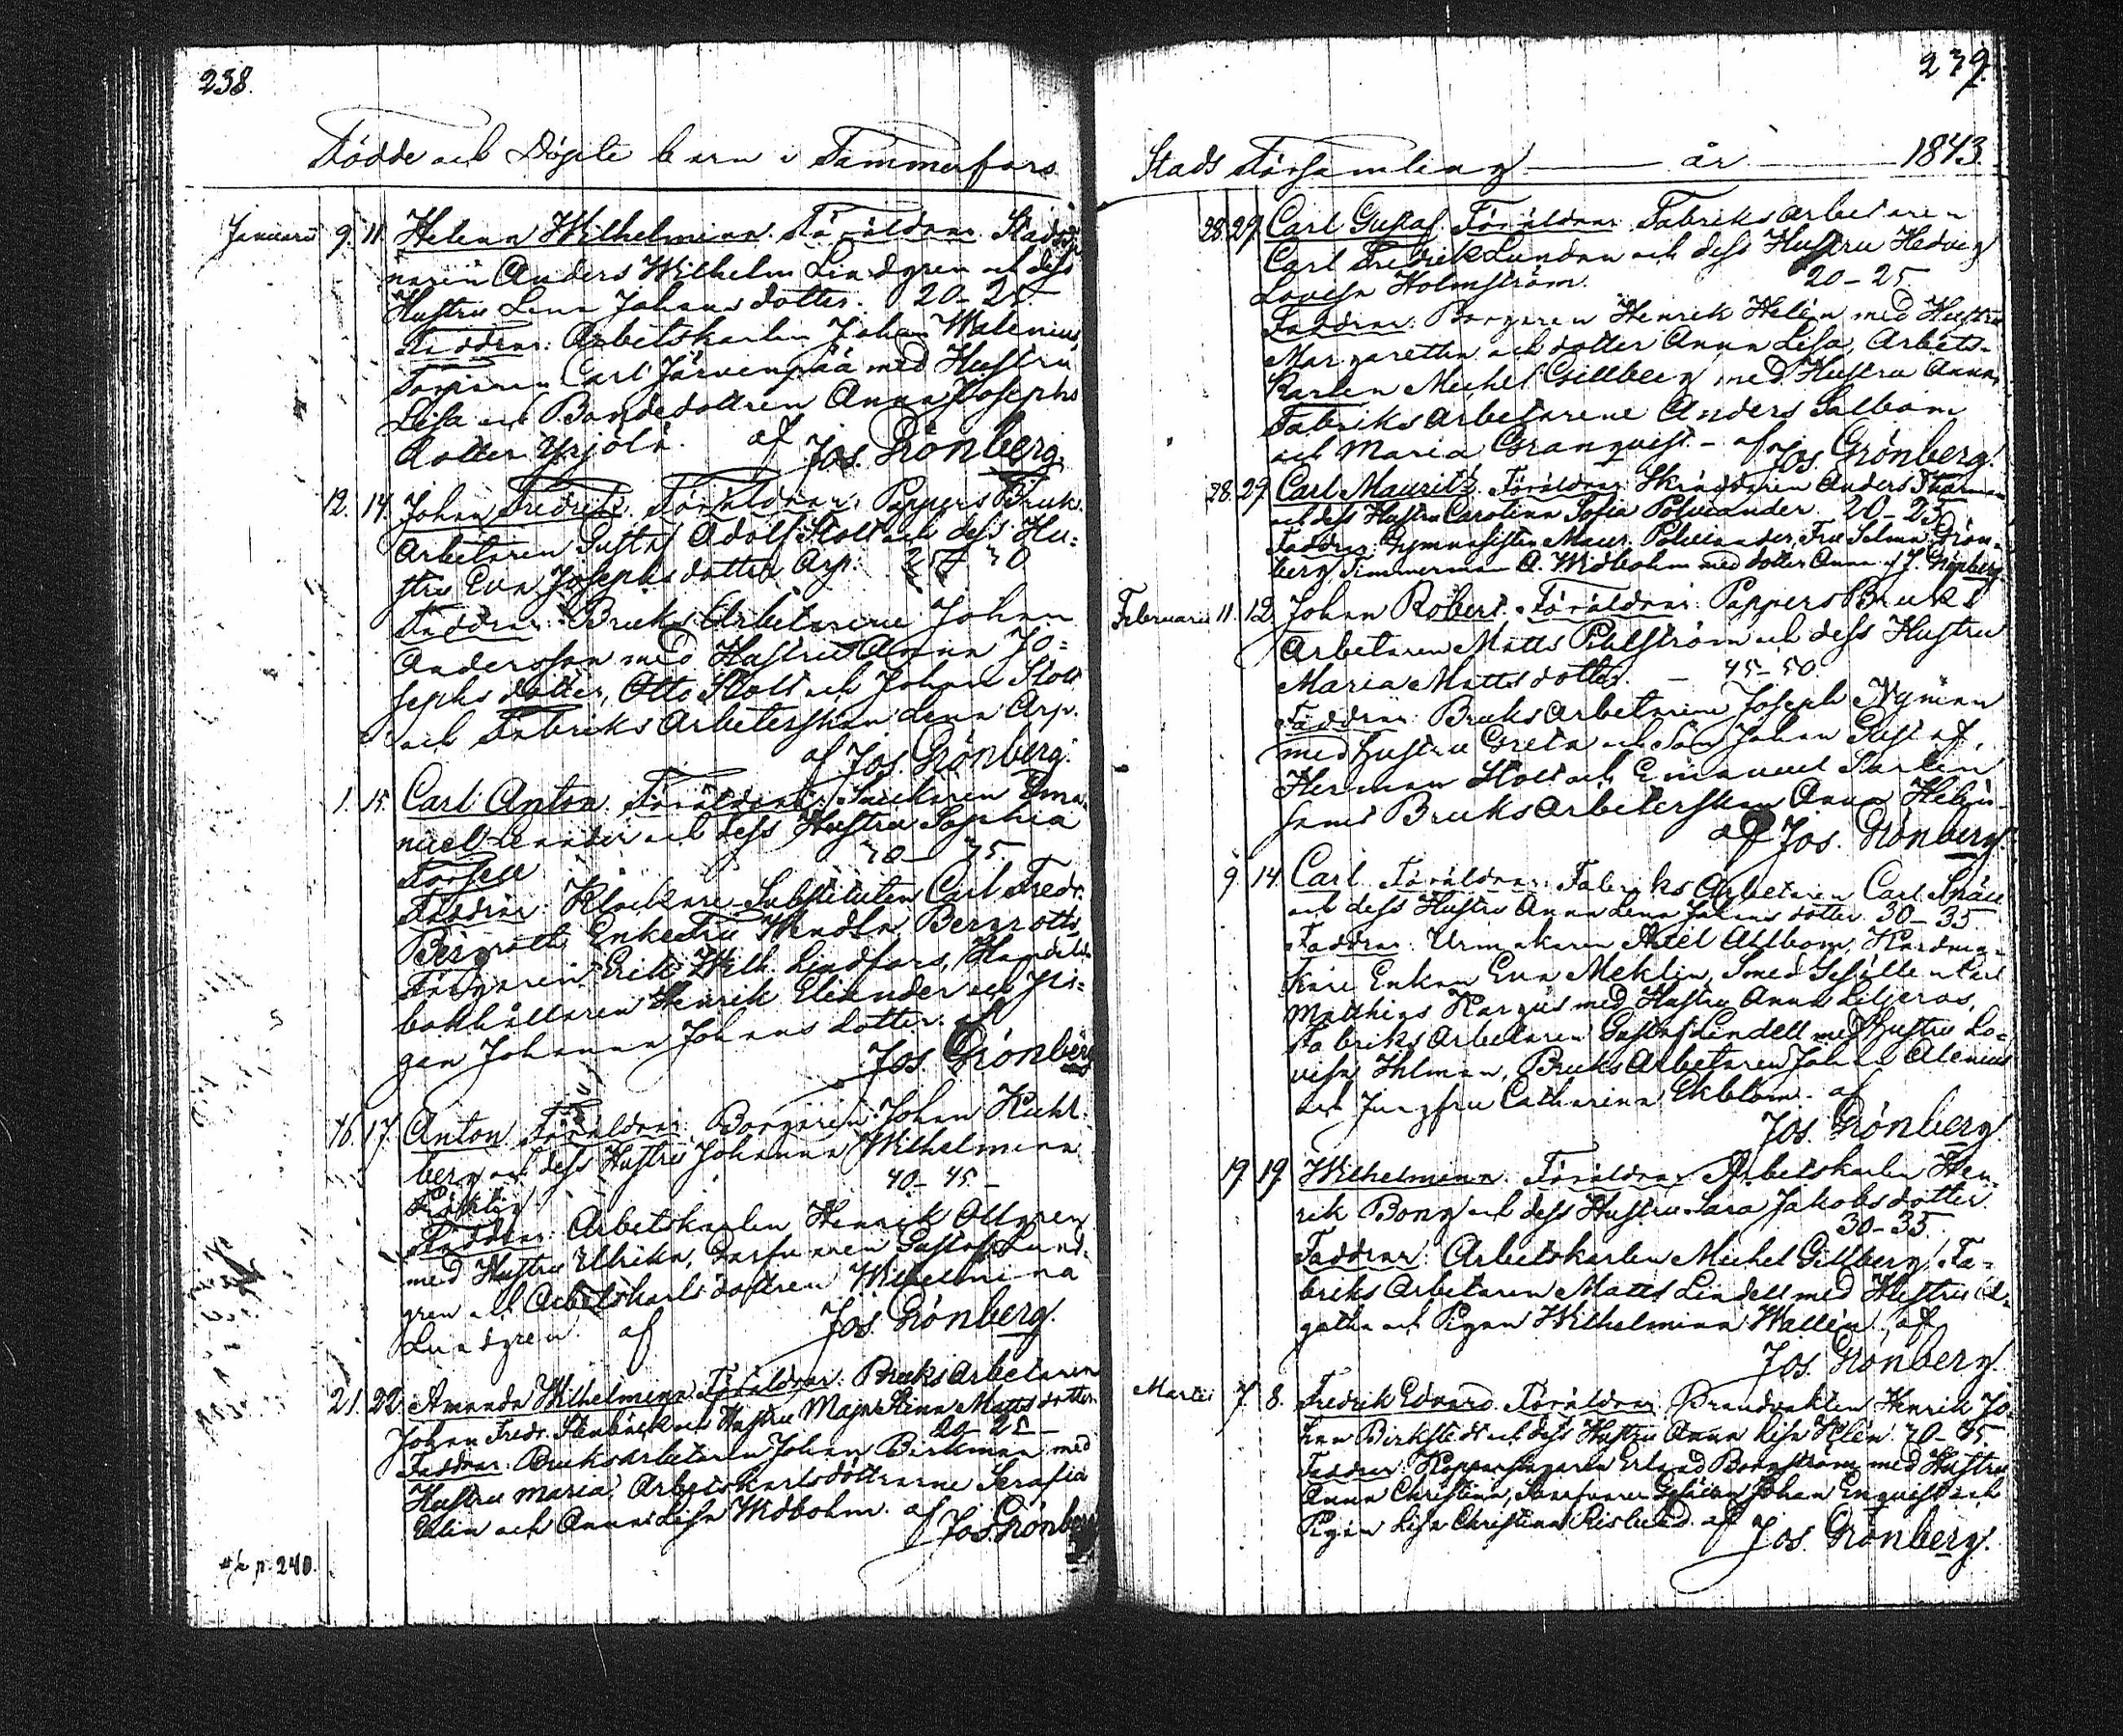 238.
Födde och Döpte barn i Tammerfors
Januarii 9. 11. Helena Wilhelmina. Föräldrar: Stadstje-
naren Anders Wilhelm Lindgren och dess
Hustru Lena Johansdotter. 20-25
Faddrar: Arbetskarlen Johan Walenius,
Torparen Carl Järvenpää med Hustru
Lisa och Bondedottren Anna Josephs
dotter Yrjölä. af Jos. Grönberg.
12. 14. Johan Fredrik. Föräldrar: Pappers Bruks
Arbetaren Gustaf Adolf Stolt och dess Hu-
stru Eva Josephsdotter Arp.
Faddrar: Bruks Arbetarene Johan
Andersson med Hustru Anna Jo-
sephs dotter, Otto Stolt och Johan Stolt
och Fabriks Arbeterskan Lena Arp.
af Jos. Grönberg.
1. 15. Carl Anton. Föräldrar: Snickaren Ema-
nuel Leander och dess Hustru Sophia
70-75.
Forsell
Faddrar: Klockare Substituten Carl Fredr.
Bergroth, Enkefru Wendla Bergroth,
Färgaren Erik Wilh. Lindfors, Handels
bokhållaren Henrik Eleander och Pi-
gan Johanna Johans dotter. af
Jos. Grönberg
16. 17. Anton. Föräldrar: Borgaren Johan Kuhl-
berg och dess Hustru Johanna Wilhelmina
40-45-
Faddrar: Arbetskarlen Henrik Ollgren
med Hustru Ulrika, Garfvaren Gustaf Lund-
gren och Arbetskarls dottren Wilhelmina
Lundgren. af Jos. Grönberg.
21. 22. Amanda Wilhelmina. Föräldrar: Bruks Arbetaren
Johan Fredr. Stenbäck och Hustru Maja Stina Matts dotter
20-25-
Faddrar: Bruksarbetaren Johan Birkman med
Hustru Maria, Arbetskarlsdöttrarne Serafia
Ulin och Anna Lisa Widbohm. af Jos. Grönberg
p. 240.
239.
Stads Församling år 1843.
28. 29. Carl Gustaf. Föräldrar: Fabriks arbetaren
Carl Fredrik Lundan och dess Hustru Hedvig
Lovisa Holmström. 20-25
Faddrar: Borgaren Henrik Helén med Hustru
Margaretha och dotter Anna Lisa, Arbets-
karlen Michel Gillberg med Hustru Anna,
Fabriks arbetarene Anders Salbom
och Maria Granqvist. - af Jos. Grönberg.
28. 29. Carl Mauritz. Föräldrar: Skräddaren Anders Thurman
och dess Hustru Carolina Sofia Polviander. 20-25
Faddrar: Gymnasisten Maur. Polviander, Fru Selma Grön-
berg, Timmerman A. Widbohm med dotter Anna. af J. Grönberg
Februarii 11. 12. Johan Robert. Föräldrar: Pappers Bruks
Arbetaren Matts Pihlström och dess Hustru
Maria Matts dotter. - 45-50
Faddrar: Bruks Arbetaren Joseph Nyman
med Hustru Greta och Son Johan Gustaf,
Herman Stolt och Emanuel Sarlin
samt Bruks arbeterskan Anna Helén.
af Jos. Grönberg.
9. 14. Carl. Föräldrar: Fabriks Arbetaren Carl Snäll
och dess Hustru Anna Lena Johans dotter. 30-35
Faddrar: Urmakaren Axel Ahlbom, Kardma-
kare Enkan Eva Meklin, Smed Gesällen Carl
Matthias Kargus med Hustru Anna Liljeros,
Fabriks Arbetaren Gustaf Lindell med Hustru Lo-
visa Ihlman, Bruks Arbetaren Johan Alenius
och Jungfru Catharina Ekblom. af
Jos. Grönberg.
19. 19. Wilhelmina. Föräldrar: Arbetskarlen Hen-
rik Bong och dess Hustru Sara Jakobs dotter.
30-35.
Faddrar: Arbetskarlen Michel Gillberg, Fa-
briks Arbetaren Matts Lindell med Hustru A-
gatha och Pigan Wilhelmina Wallén. af
Jos. Grönberg.
Martii 7. 8. Fredrik Edvard. Föräldrar: Brandvakten Henrik Jo-
han Birkstedt och dess Hustru Anna Lisa Helén.
Faddrar: Kopparslagaren Erland Bongström med Hustru
Anna Christina, Garfvare Gesällen Johan Enqvist och
Pigan Lisa Christina Rislund. af Jos. Grönberg.